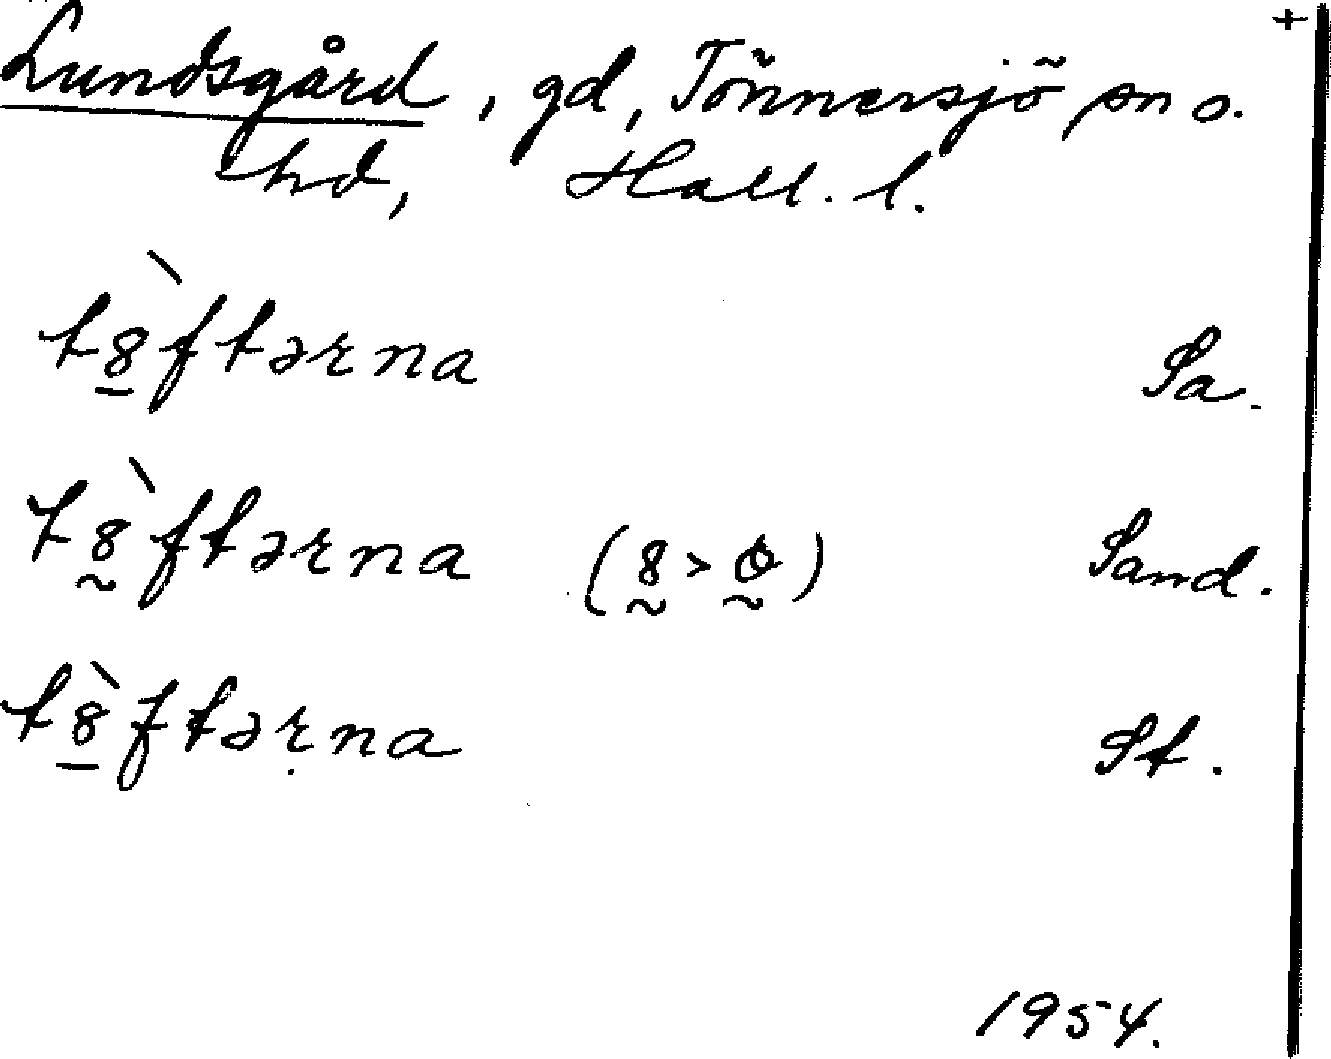 +
Lundsgård, gd, Tönnersjö sn o.
hd, Hall. l.
t8̲̀ftərna Sa.
t8̰̀ftərna (8̰ > ꝋ̰) Sand.
t8̲̀ftəṛna St.
1954.